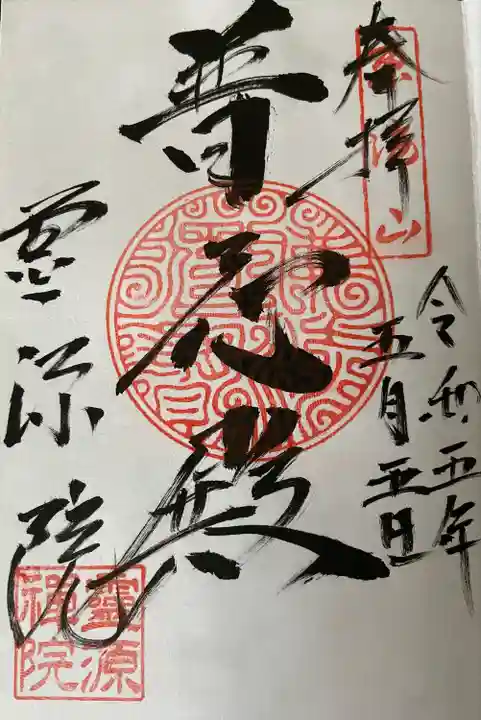 奉拝
令和五年
五月五日
普光殿
霊源院
靈源
禅院